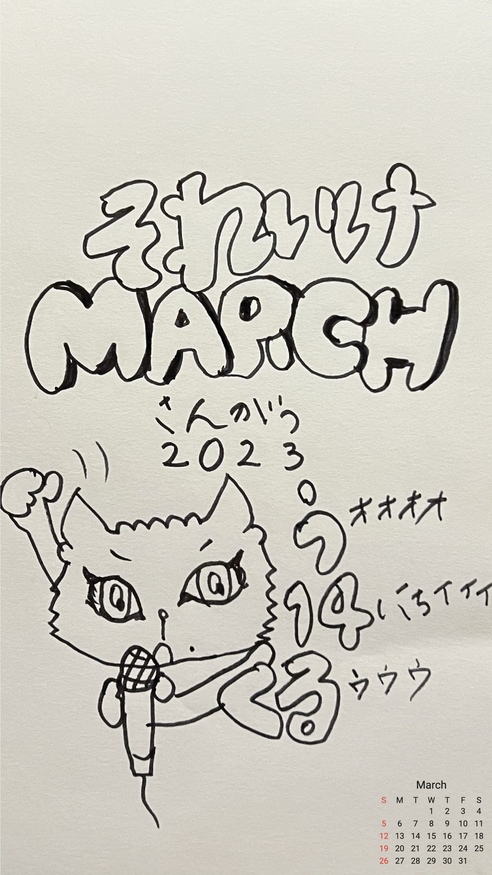 それいけ
MARCH
さんがつ
2023
う オオオオ
14 いちイイイ
くる ゥゥゥ
March
S M T W T F S
1 2 3 4
5 6 7 8 9 10 11
12 13 14 15 16 17 18
19 20 21 22 23 24 25
26 27 28 29 30 31